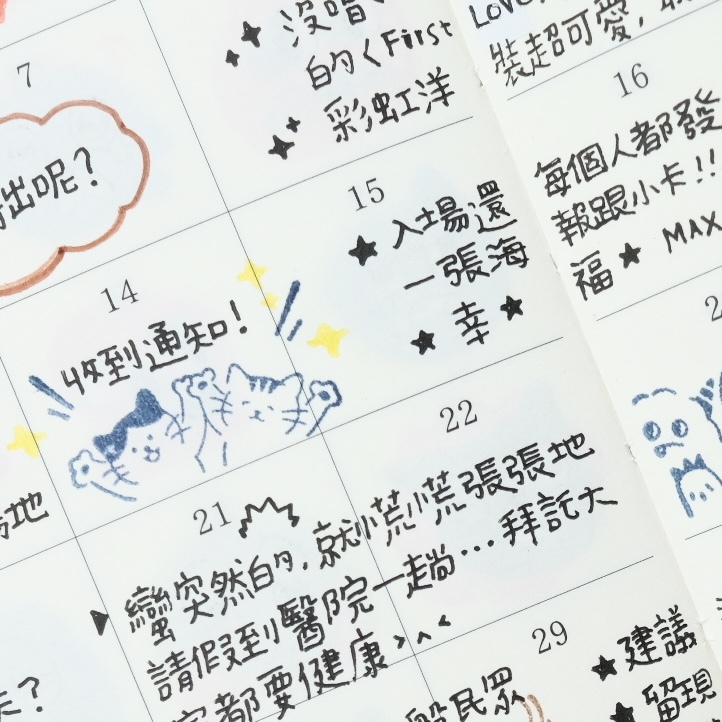 沒唱
的<First
彩虹洋
LOVE
裝超可愛,
7
出呢?
15
入場還
一張海
幸
16
每個人都發
報跟小卡!!
福 MAX
14
收到通知!
地
22
21
蠻突然的,就慌慌張張地
請假到醫院一趟…拜託大
家都要健康>^<
29
般民眾
建議
留現
?